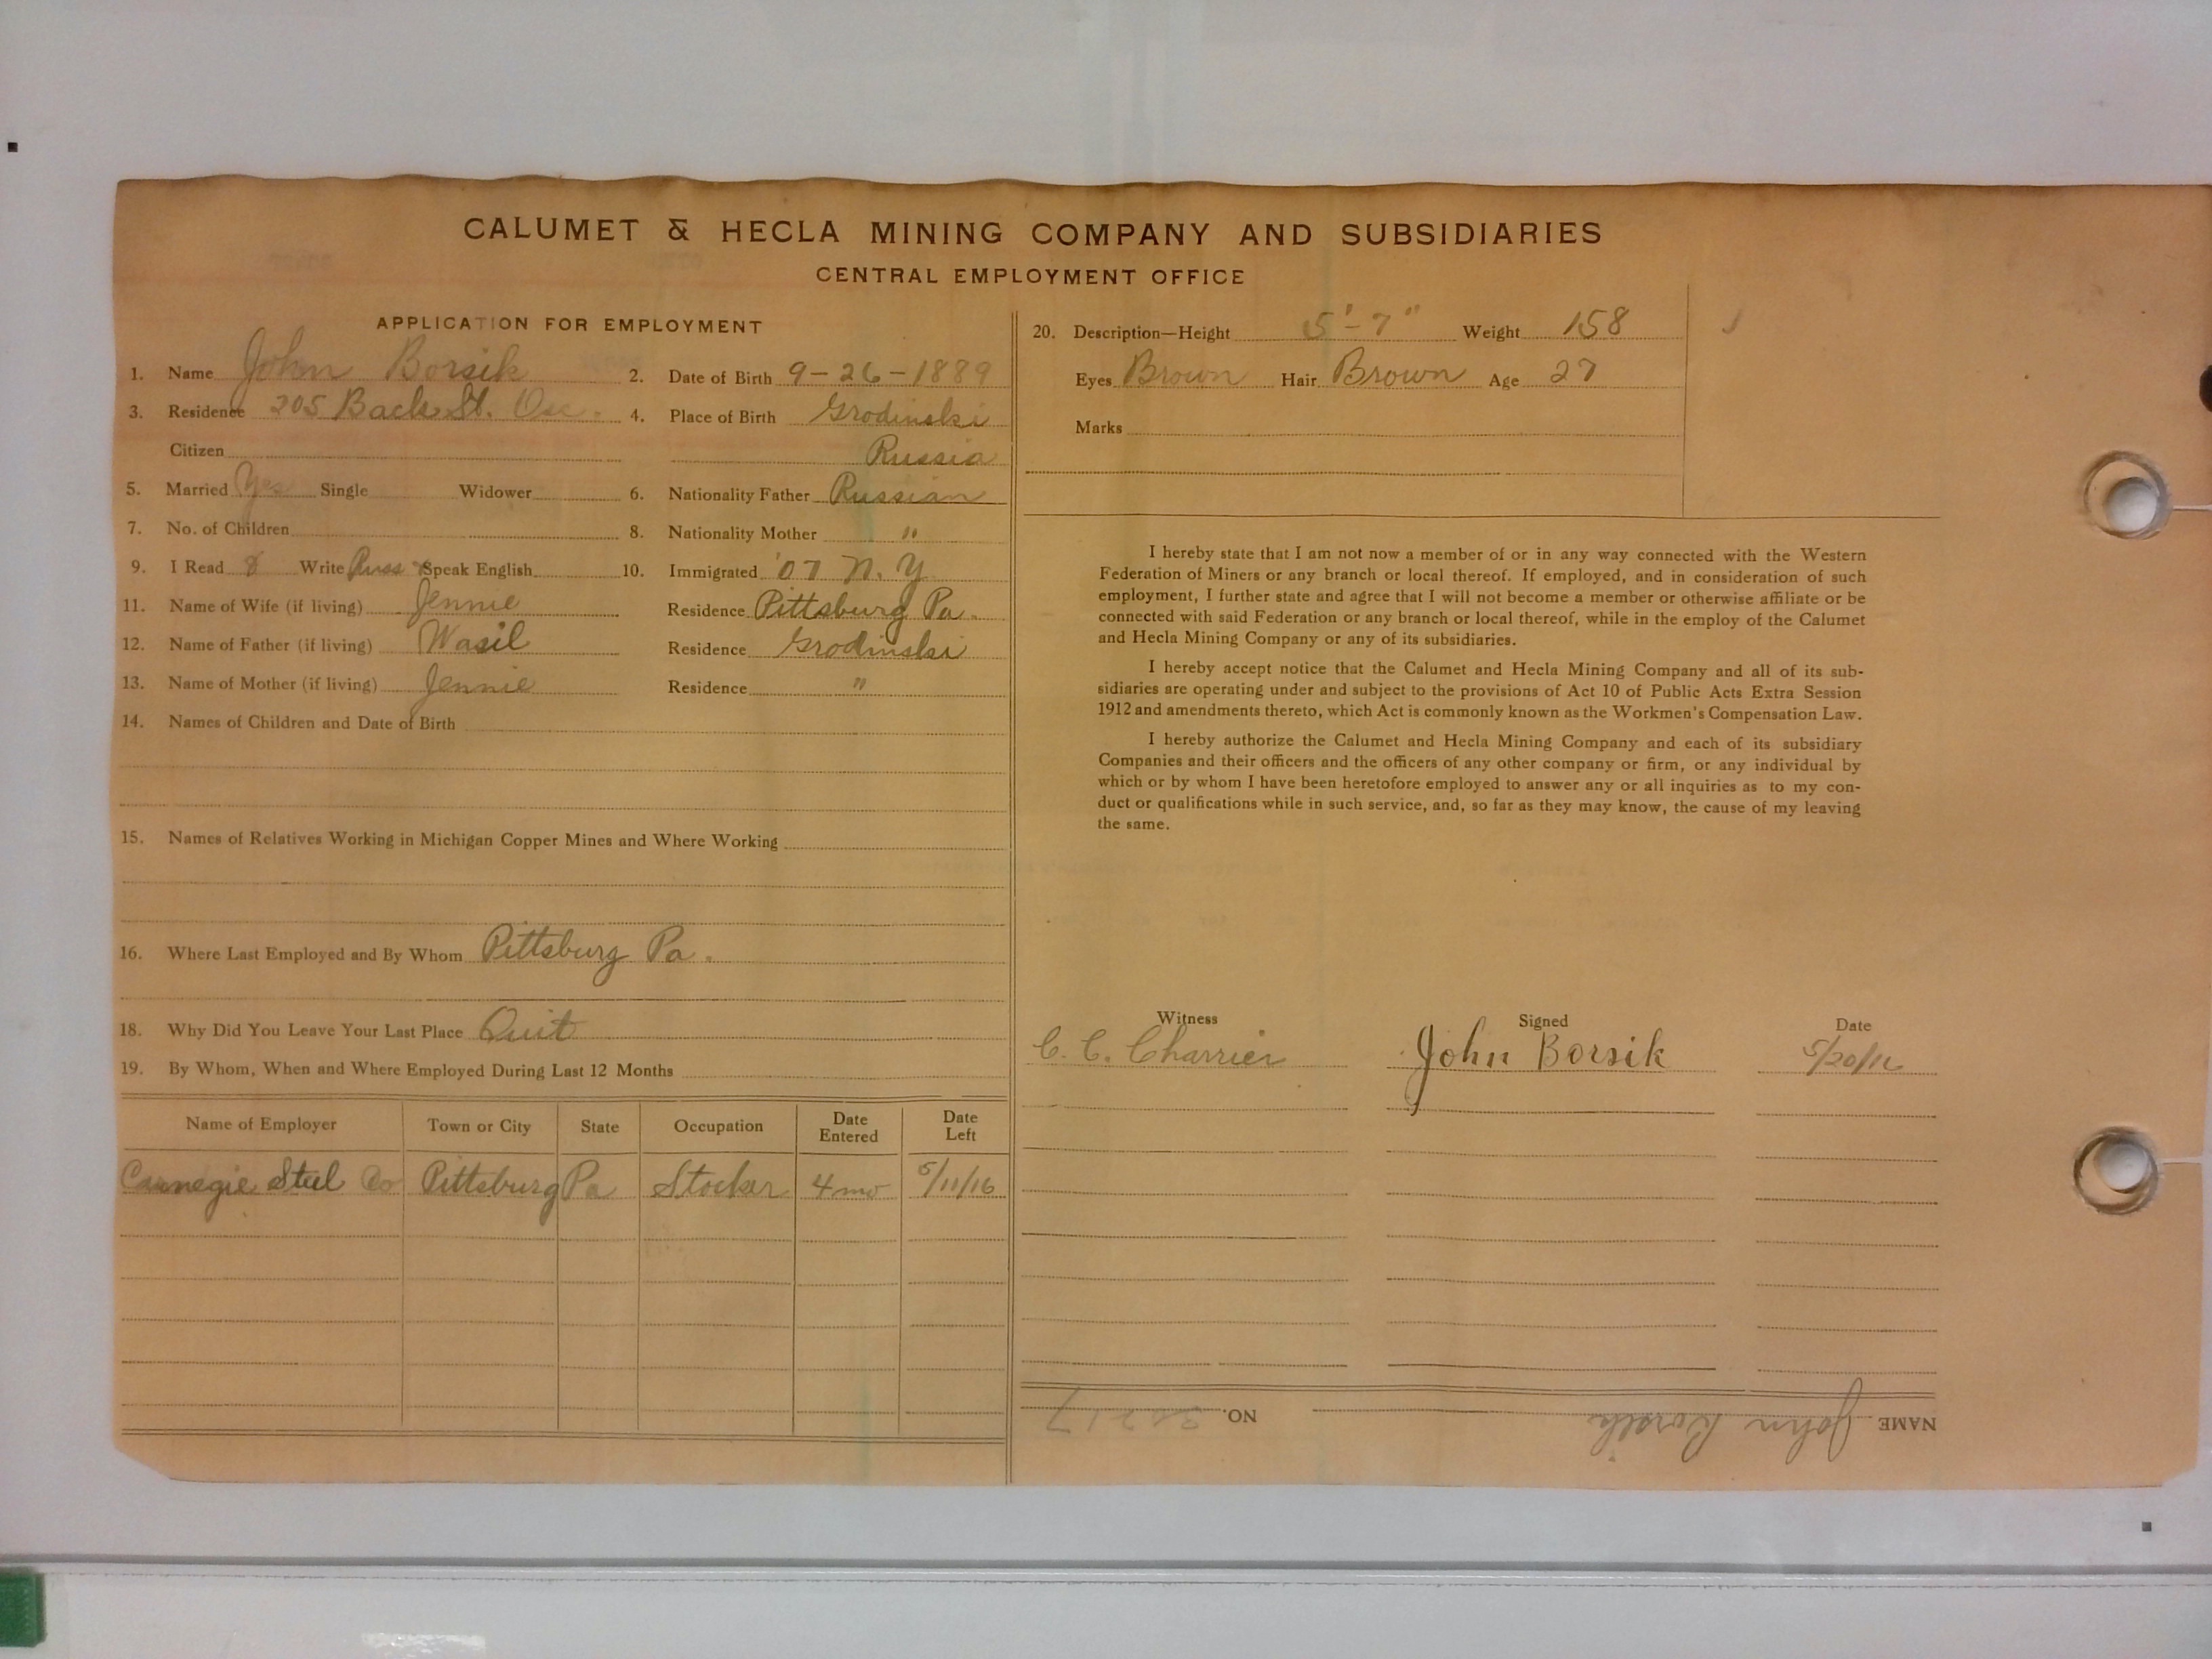 CALUMET & HECLA MINING COMPANY AND SUBSIDIARIES
CENTRAL EMPLOYMENT OFFICE
APPLICATION FOR EMPLOYMENT
1. Name John Borsik 2. Date of Birth 9-26-1889
3. Residence 205 Back St. Osc. 4. Place of Birth Grodinski
Citizen Russia
5. Married Yes Single Widower 6. Nationality Father Russian
7. No. of Children 8. Nationality Mother "
9. I Read & Write Russ Speak English 10. Immigrated '07 N.Y
11. Name of Wife (if living) Jennie Residence Pittsburg Pa.
12. Name of Father (if living) Wasil Residence Grodinski
13. Name of Mother (if living) Jennie Residence "
14. Names of Children and Date of Birth
15. Names of Relatives Working in Michigan Copper Mines and Where Working
16. Where Last Employed and By Whom Pittsburg Pa.
18. Why Did You Leave Your Last Place Quit
19. By Whom, When and Where Employed During Last 12 Months
Name of Employer Town or City State Occupation Date Entered Date Left
Carnegie Steel Co Pittsburg Pa Stocker 4 mo 5/11/16
20. Description—Height 5'-7" Weight 158
Eyes Brown Hair Brown Age 27
Marks
I hereby state that I am not now a member of or in any way connected with the Western
Federation of Miners or any branch or local thereof. If employed, and in consideration of such
employment, I further state and agree that I will not become a member or otherwise affiliate or be
connected with said Federation or any branch or local thereof, while in the employ of the Calumet
and Hecla Mining Company or any of its subsidiaries.
I hereby accept notice that the Calumet and Hecla Mining Company and all of its sub-
sidiaries are operating under and subject to the provisions of Act 10 of Public Acts Extra Session
1912 and amendments thereto, which Act is commonly known as the Workmen's Compensation Law.
I hereby authorize the Calumet and Hecla Mining Company and each of its subsidiary
Companies and their officers and the officers of any other company or firm, or any individual by
which or by whom I have been heretofore employed to answer any or all inquiries as to my con-
duct or qualifications while in such service, and, so far as they may know, the cause of my leaving
the same.
Witness Signed Date
C. C. Charrier John Borsik 5/20/16
NAME John Borsik NO.